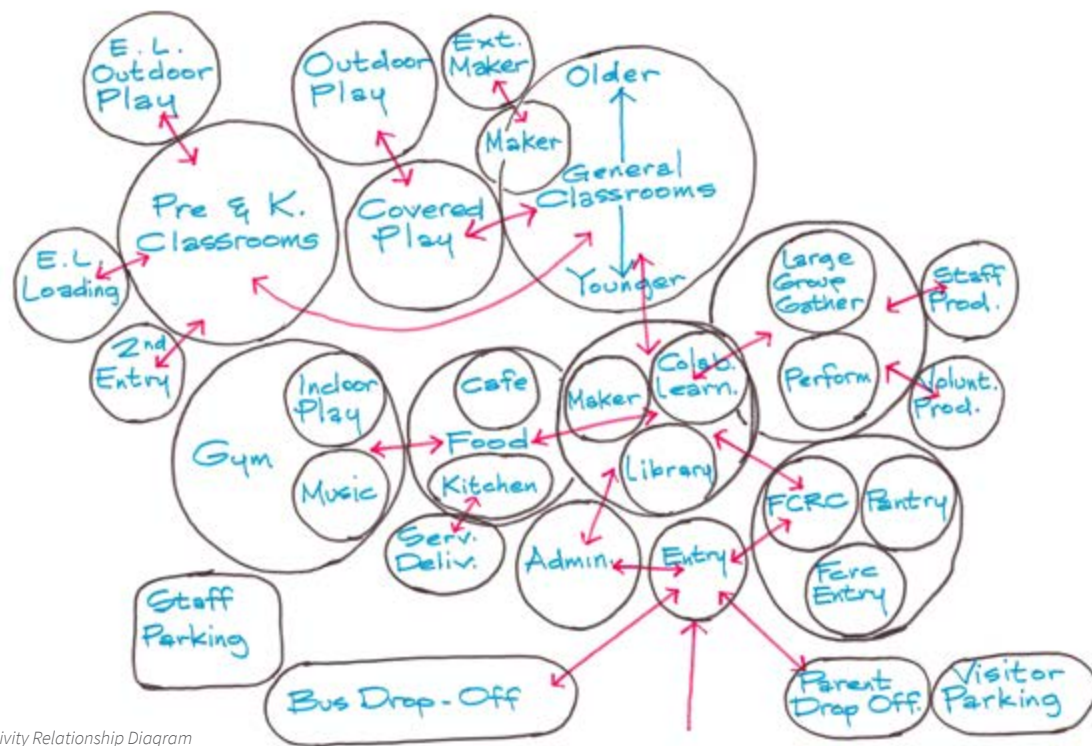 E. L.
Outdoor
Play
Outdoor
Play
Ext.
Maker
Older
Maker
General
Classrooms
Younger
Pre & K.
Classrooms
Covered
Play
E.L.
Loading
2nd
Entry
Large
Group
Gather
Staff
Prod.
Perform
Volunt.
Prod.
Indoor
Play
Gym
Music
Cafe
Food
Kitchen
Maker
Colab.
Learn.
Library
Serv.
Deliv.
Admin.
Entry
FCRC
Pantry
Fcrc
Entry
Staff
Parking
Bus Drop-Off
Parent
Drop Off.
Visitor
Parking
ivity Relationship Diagram